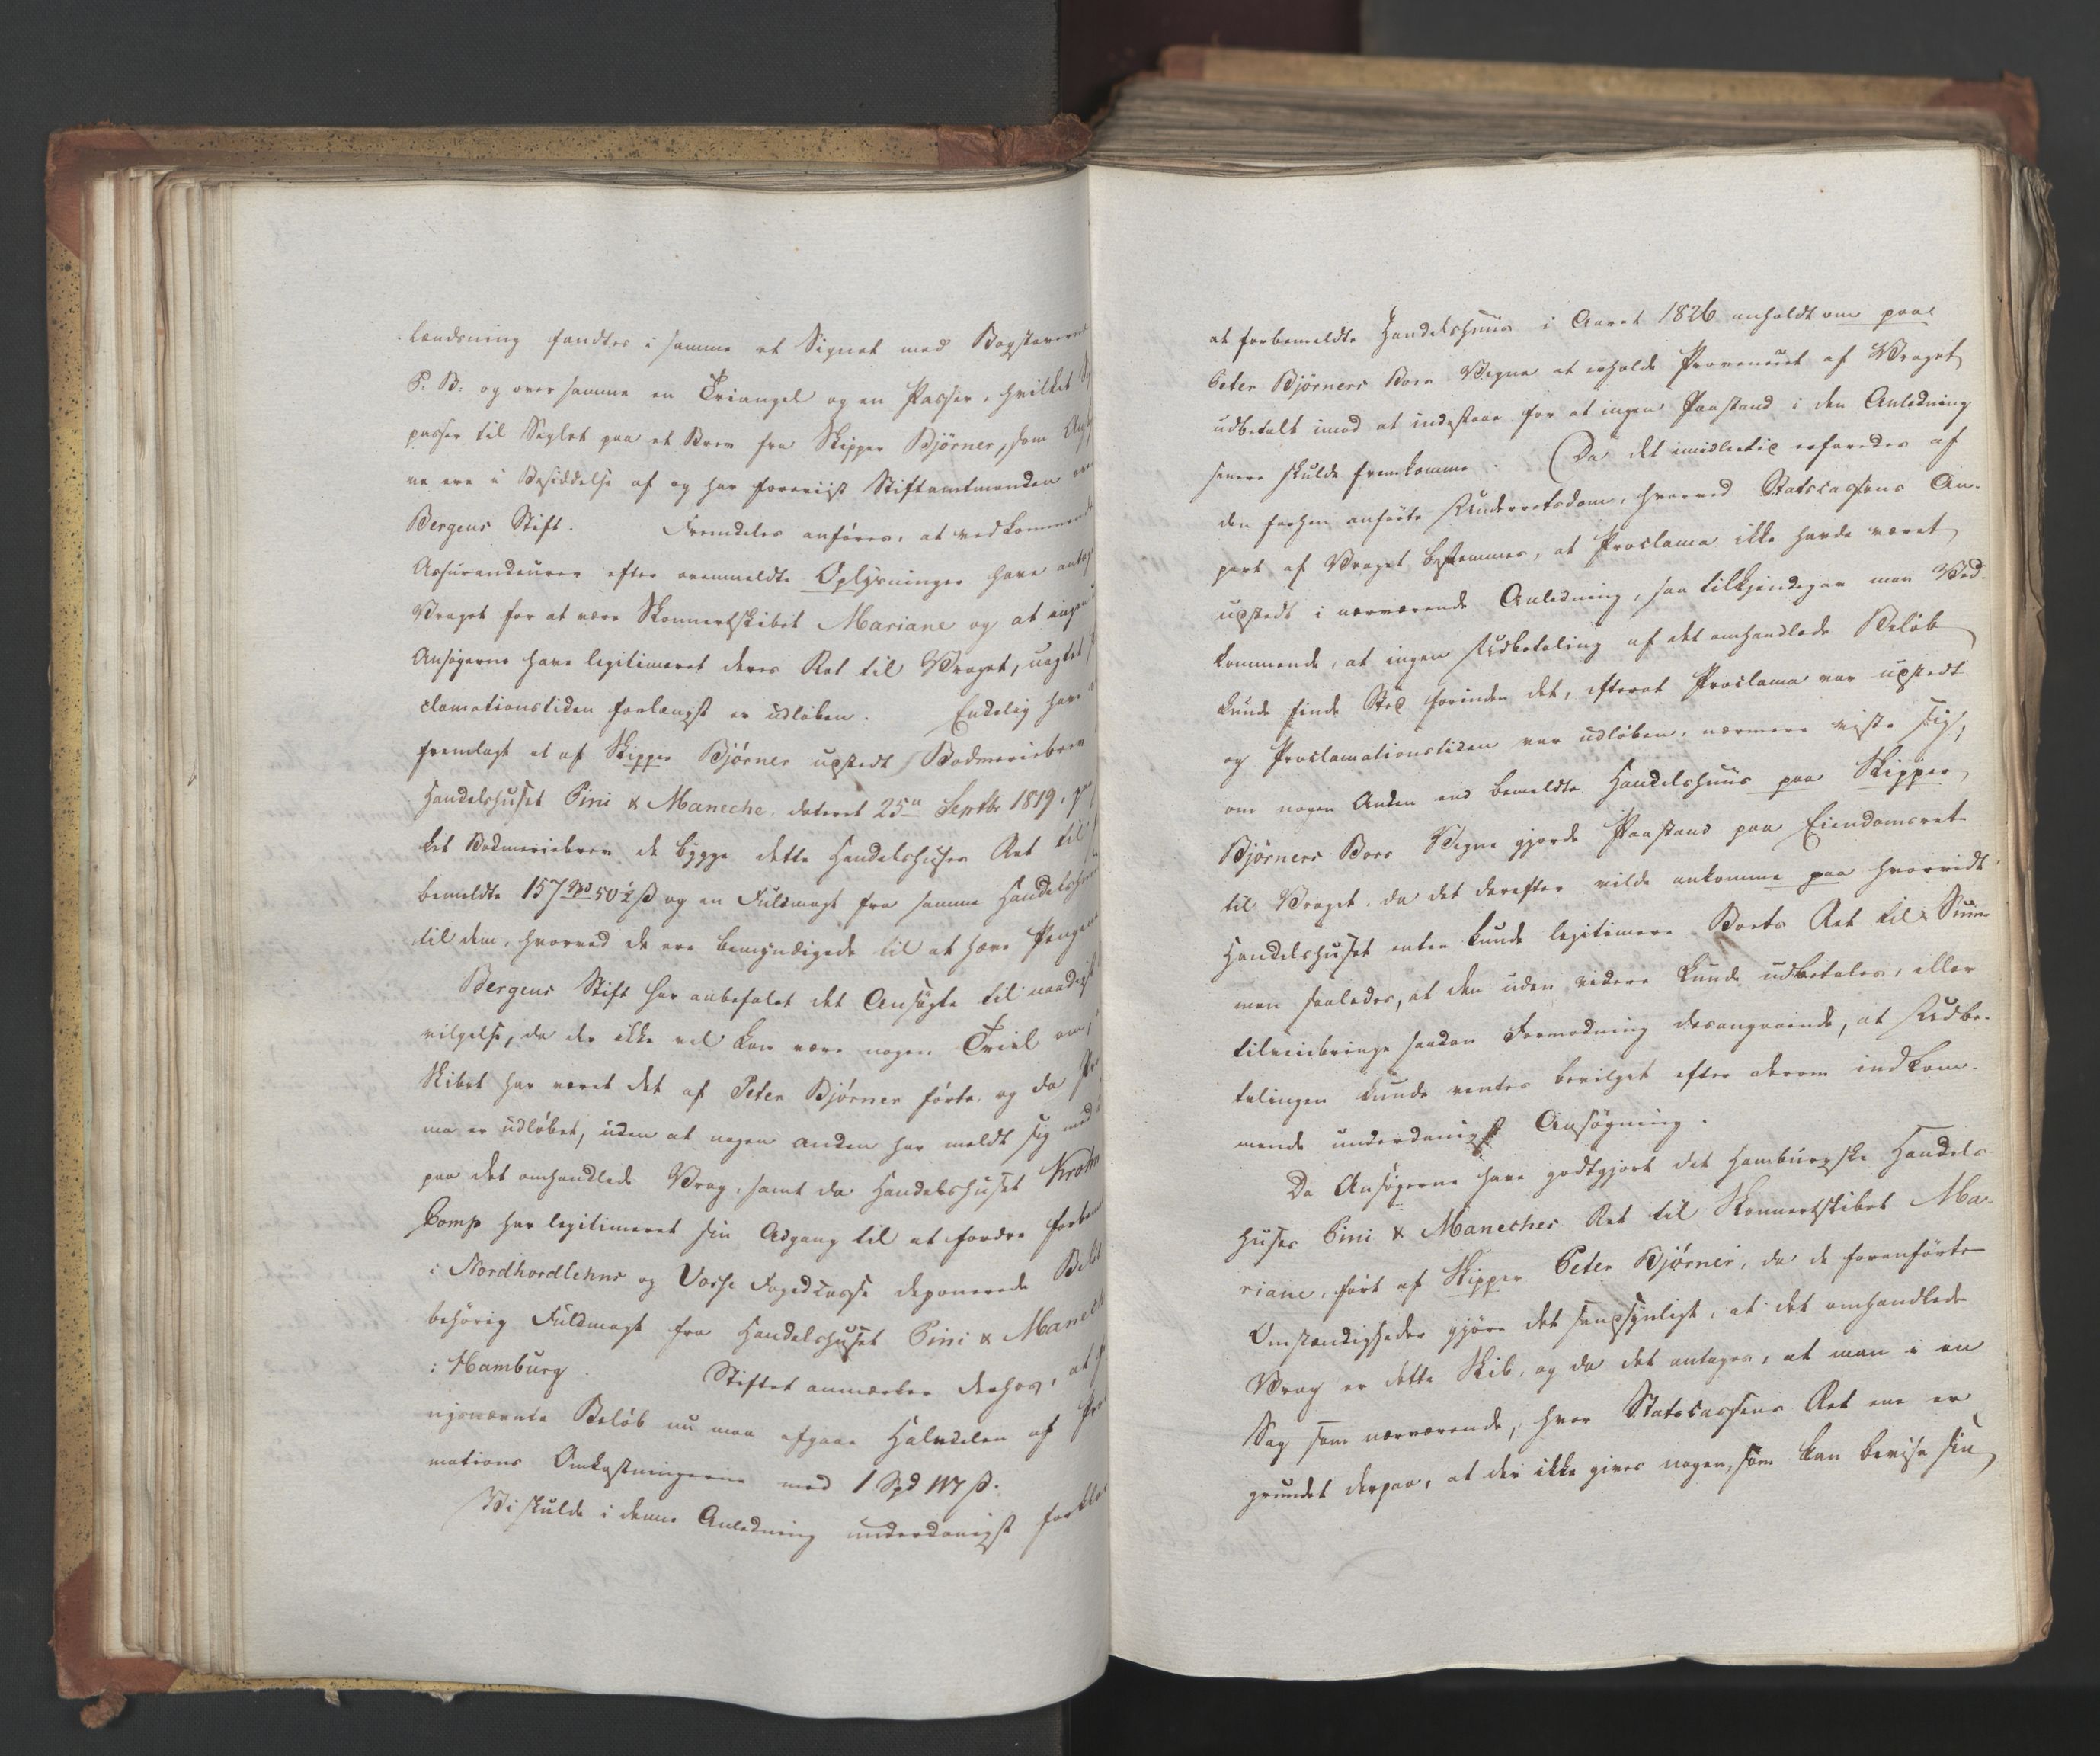 landsning fandtes i samme et Signet med Bogstaverne
P. B. og over samme en Triangel og en Passer, hvilket
passer til Seglet paa et Brev fra Skipper Bjørner, som
ne ere i Besiddelse af og har foreviist Stiftamtmanden over
Bergens Stift. Fremdeles anføres, at vedkommende
Assurandeurer efter ovenmeldte Oplysninger have antag
Vraget for at være Skonnertskibet Mariane og at ingen
Ansøgerne have legitimeret deres Ret til Vraget, uagtet
clamationstiden forlængst er udløben. Endelig have
fremlagt et af Skipper Bjørner udstedt Bodmeriebrev
Handelshuset Pini & Maneche, dateret 25de Septbr 1819,
ket Bodmeriebrev de bygge dette Handelshuses Ret til
bemeldte 157 Spd 50½ ß og en Fuldmagt fra samme Handelshuus
til dem, hvorved de ere bemyndigede til at hæve Pengene
Bergens Stift har anbefalet det Ansøgte til naadigst
vilgelse, da der ikke vel kan være nogen Tvivl om,
Skibet har været det af Peter Bjørner førte, og da
ma er udløbet, uden at nogen anden har meldt sig med
paa det omhandlede Vrag, samt da Handelshuset Krohn
Comp har legitimeret sin Adgang til at fordre
i Nordhordlehns og Vosse Fogedcasse deponerede Beløb
behørig Fuldmagt fra Handelshuset Pini & Maneche
i Hamburg. Stiftet anmærker derhos, at
nysnævnte Beløb nu maa afgaae Halvdelen af
mations Omkostningerne med 1 Spd ß.
Vi skulde i denne Anledning underdanigst forklare
at forbemeldte Handelshuus i Aaret 1826 anholdt om paa
Peter Bjørners Boes Vegne at erholde Provenuet af Vraget
udbetalt imod at indestaae for at ingen Paastand i den Anledning
senere skulde fremkomme. Da det imidlertid erfaredes af
den forhen anførte Underretsdom, hvorved Statscassens An-
part af Vraget bestemmes, at Proclama ikke havde været
udstedt i nærværende Anledning, saa tilkjendegav man Ved-
kommende, at ingen Udbetaling af det omhandlede Beløb
kunde finde Sted forinden det, efterat Proclama var udstedt
og Proclamationstiden var udløben, nærmere viste sig,
om nogen Anden end bemeldte Handelshuus paa Skipper
Bjørners Boes Vegne gjorde Paastand paa Eiendomsret
til Vraget, da det derefter vilde ankomme paa hvorvidt
Handelshuset enten kunde legitimere Boets Ret til Sum-
men saaledes, at den uden videre kunde udbetales, eller
tilveiebringe saadan Formodning desangaaende, at Udbe-
talingen kunde ventes bevilget efter derom indkom-
mende underdanigst Ansøgning.
Da Ansøgerne have godtgjort det Hamburgske Handels-
huses Pini & Maneches Ret til Skonnertskibet Ma-
riane, ført af Skipper Peter Bjørner, da de foranførte
Omstændigheder gjøre det sandsynligt, at det omhandlede
Vrag er dette Skib, og da det antages, at man i en
Sag som nærværende, hvor Statscassens Ret ene er
grundet derpaa, at der ikke gives nogen, som kan bevise sin